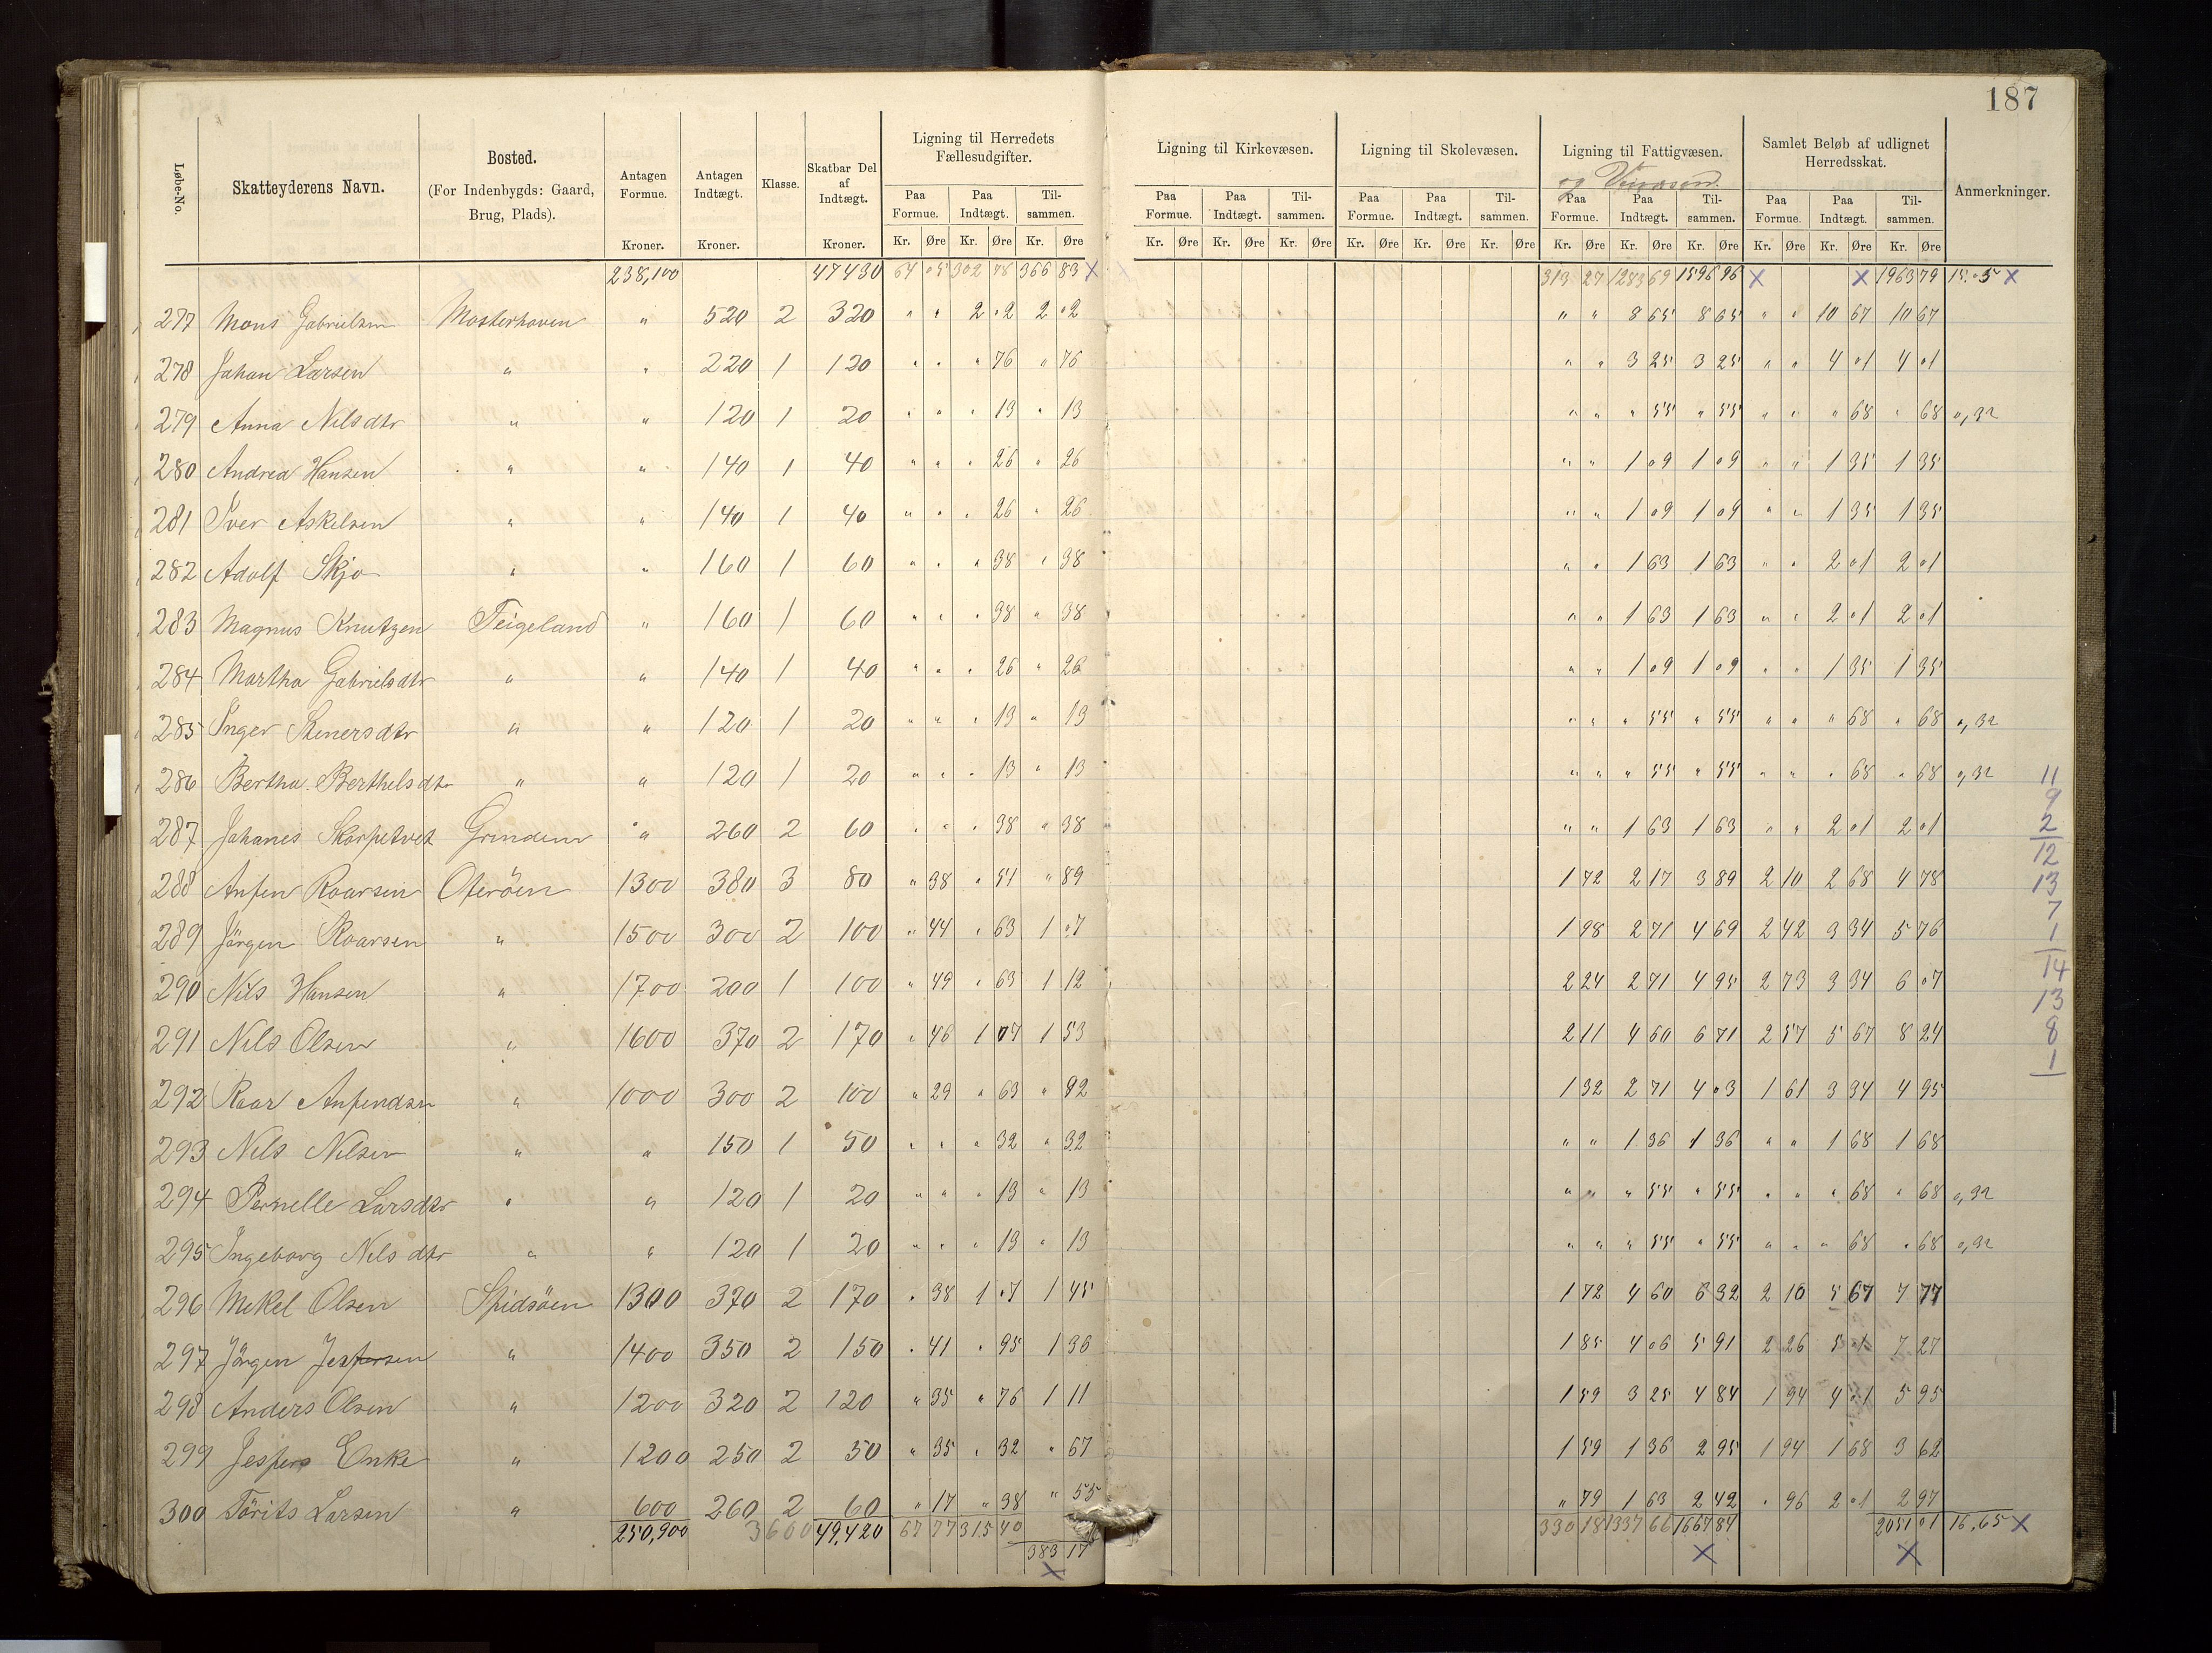 187
Løbe-No. Skatteyderens Navn. Bosted. (For Indenbygds: Gaard, Brug, Plads). Antagen Formue. Kroner. Antagen Indtægt. Kroner. Klasse. Skatbar Del af Indtægt. Kroner. Ligning til Herredets Fællesudgifter. Ligning til Kirkevæsen. Ligning til Skolevæsen. Ligning til Fattigvæsen. og Samlet Beløb af udlignet Herredsskat. Anmerkninger.
Paa Formue. Paa Indtægt. Tilsammen. Paa Formue. Paa Indtægt. Tilsammen. Paa Formue. Paa Indtægt. Tilsammen. Paa Formue. Paa Indtægt. Tilsammen. Paa Formue. Paa Indtægt. Tilsammen.
Kr. Øre Kr. Øre Kr. Øre Kr. Øre Kr. Øre Kr. Øre Kr. Øre Kr. Øre Kr. Øre Kr. Øre Kr. Øre Kr. Øre Kr. Øre Kr. Øre Kr. Øre
238,100 47430 64 05 302 78 366 83 X 313 27 1283 69 1596 96 X X 1963 79 15.05 X
277 Mons Gabrielsen Mosterhavn " 520 2 320 " " 2 02 2 02 " " 8 65 8 65 " " 10 67 10 67
278 Johan Larsen " " 220 1 120 " " " 76 " 76 " " 3 25 3 25 " " 4 01 4 01
279 Anna Nilsdtr " " 120 1 20 " " " 13 " 13 " " " 55 " 55 " " " 68 " 68 0,32
280 Andrea Hansen " " 140 1 40 " " " 26 " 26 " " 1 09 1 09 " " 1 35 1 35
281 Iver Askelsen " " 140 1 40 " " " 26 " 26 " " 1 09 1 09 " " 1 35 1 35
282 Adolf Skjo " " 160 1 60 " " " 38 " 38 " " 1 63 1 63 " " 2 01 2 01
283 Magnus Knutzen Teigeland " 160 1 60 " " " 38 " 38 " " 1 63 1 63 " " 2 01 2 01
284 Martha Gabrielsdtr " " 140 1 40 " " " 26 " 26 " " 1 09 1 09 " " 1 35 1 35
285 Inger Stenersdtr " " 120 1 20 " " " 13 " 13 " " " 55 " 55 " " " 68 " 68 0,32
286 Bertha Berthelsdtr " " 120 1 20 " " " 13 " 13 " " " 55 " 55 " " " 68 " 68 0,32 11
9
287 Johanes Skarpetvet Grindem " 260 2 60 " " " 38 " 38 " " 1 63 1 63 " " 2 01 2 01 2
12
288 Anfen Roarsen Oterøen 1300 380 3 80 " 38 " 51 " 89 1 72 2 17 3 89 2 10 2 68 4 78 13
7
289 Jörgen Roarsen " 1500 300 2 100 " 44 " 63 1 07 1 98 2 71 4 69 2 42 3 34 5 76 1
14
290 Nils Hansen " 1700 200 1 100 " 49 " 63 1 12 2 24 2 71 4 95 2 73 3 34 6 07 13
291 Nils Olsen " 1600 370 2 170 " 46 1 07 1 53 2 11 4 60 6 71 2 57 5 67 8 24 8
1
292 Roar Anfendsen " 1000 300 2 100 " 29 " 63 " 92 1 32 2 71 4 03 1 61 3 34 4 95
293 Nils Nilsen " " 150 1 50 " " " 32 " 32 " " 1 36 1 36 " " 1 68 1 68
294 Pernelle Larsdtr " " 120 1 20 " " " 13 " 13 " " " 55 " 55 " " " 68 " 68 0,32
295 Ingeborg Nilsdtr " " 120 1 20 " " " 13 " 13 " " " 55 " 55 " " " 68 " 68 0,32
296 Mikel Olsen Spidsöen 1300 370 2 170 " 38 1 07 1 45 1 72 4 60 6 32 2 10 5 67 7 77
297 Jörgen Jespersen " 1400 350 2 150 " 41 " 95 1 36 1 85 4 06 5 91 2 26 5 01 7 27
298 Anders Olsen " 1200 320 2 120 " 35 " 76 1 11 1 59 3 25 4 84 1 94 4 01 5 95
299 Jesper Enke " 1200 250 2 50 " 35 " 32 " 67 1 59 1 36 2 95 1 94 1 68 3 62
300 Törits Larsen " 600 260 2 60 " 17 " 38 " 55 " 79 1 63 2 42 " 96 2 01 2 97
250,900 3600 49,420 67 77 315 40 330 18 1337 66 1667 84 2051 01 16,65 X
383 17 X X
X